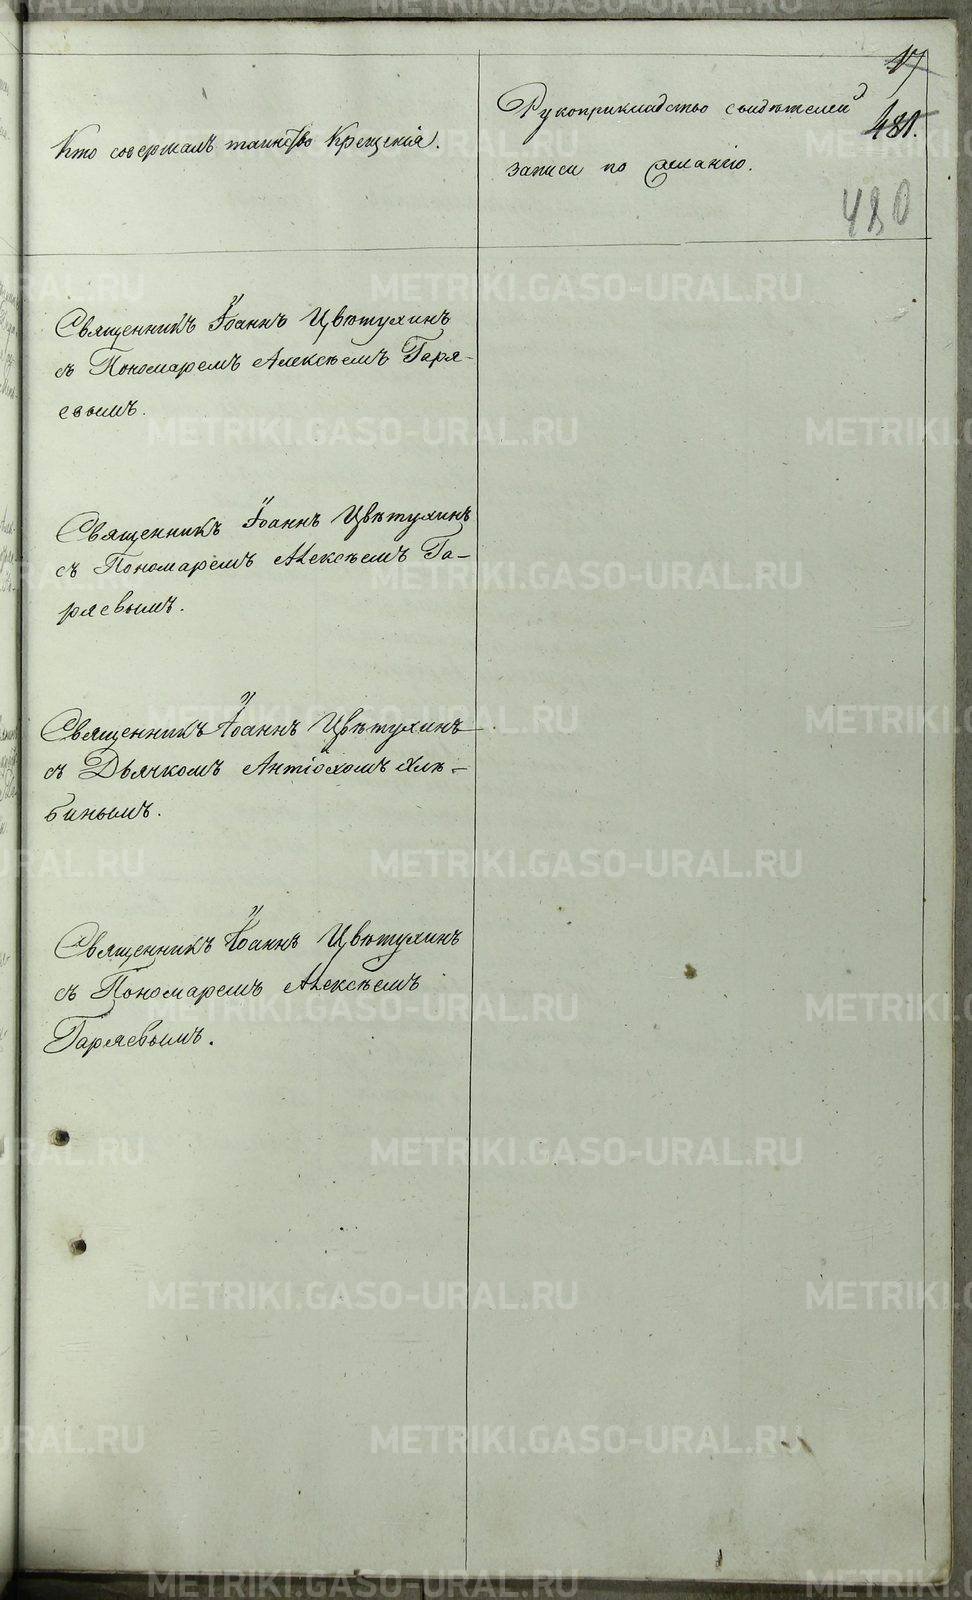 17
481.
480
Кто совершалъ таинство Крещенія.
Рукоприкладство свидѣтелей
записи по желанію.
Священникъ Іоаннъ Цвѣтухинъ
съ Пономаремъ Алексѣемъ Гаря-
евымъ.
Священникъ Іоаннъ Цвѣтухинъ
съ Пономаремъ Алексѣемъ Га-
ряевымъ.
Священникъ Іоаннъ Цвѣтухинъ
съ Дьячкомъ Антіохомъ Хлѣ-
бинымъ.
Священникъ Іоаннъ Цвѣтухинъ
съ Пономаремъ Алексѣемъ
Гаряевымъ.
METRIKI.GASO-URAL.RU